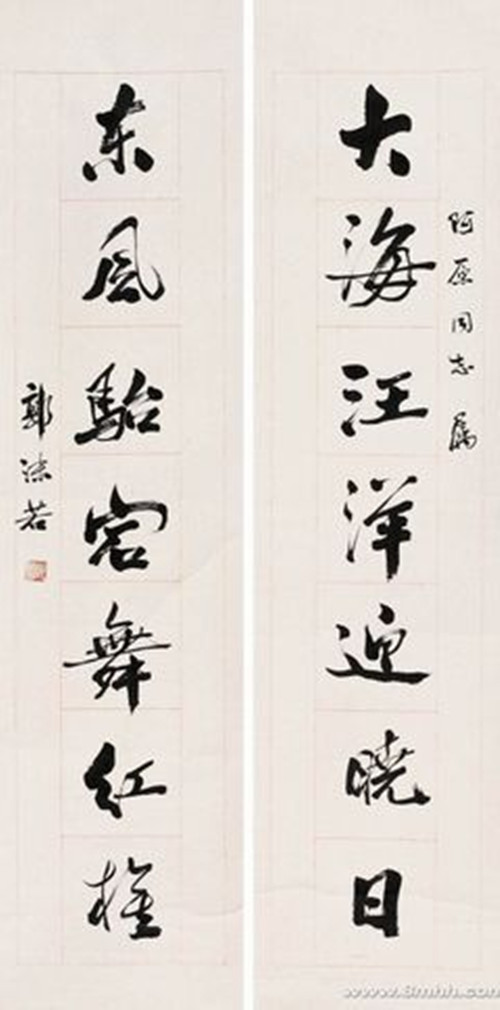 阿原同志属
大海汪洋迎晓日
东风骀宕舞红旌
郭沫若
www.8mhh.com